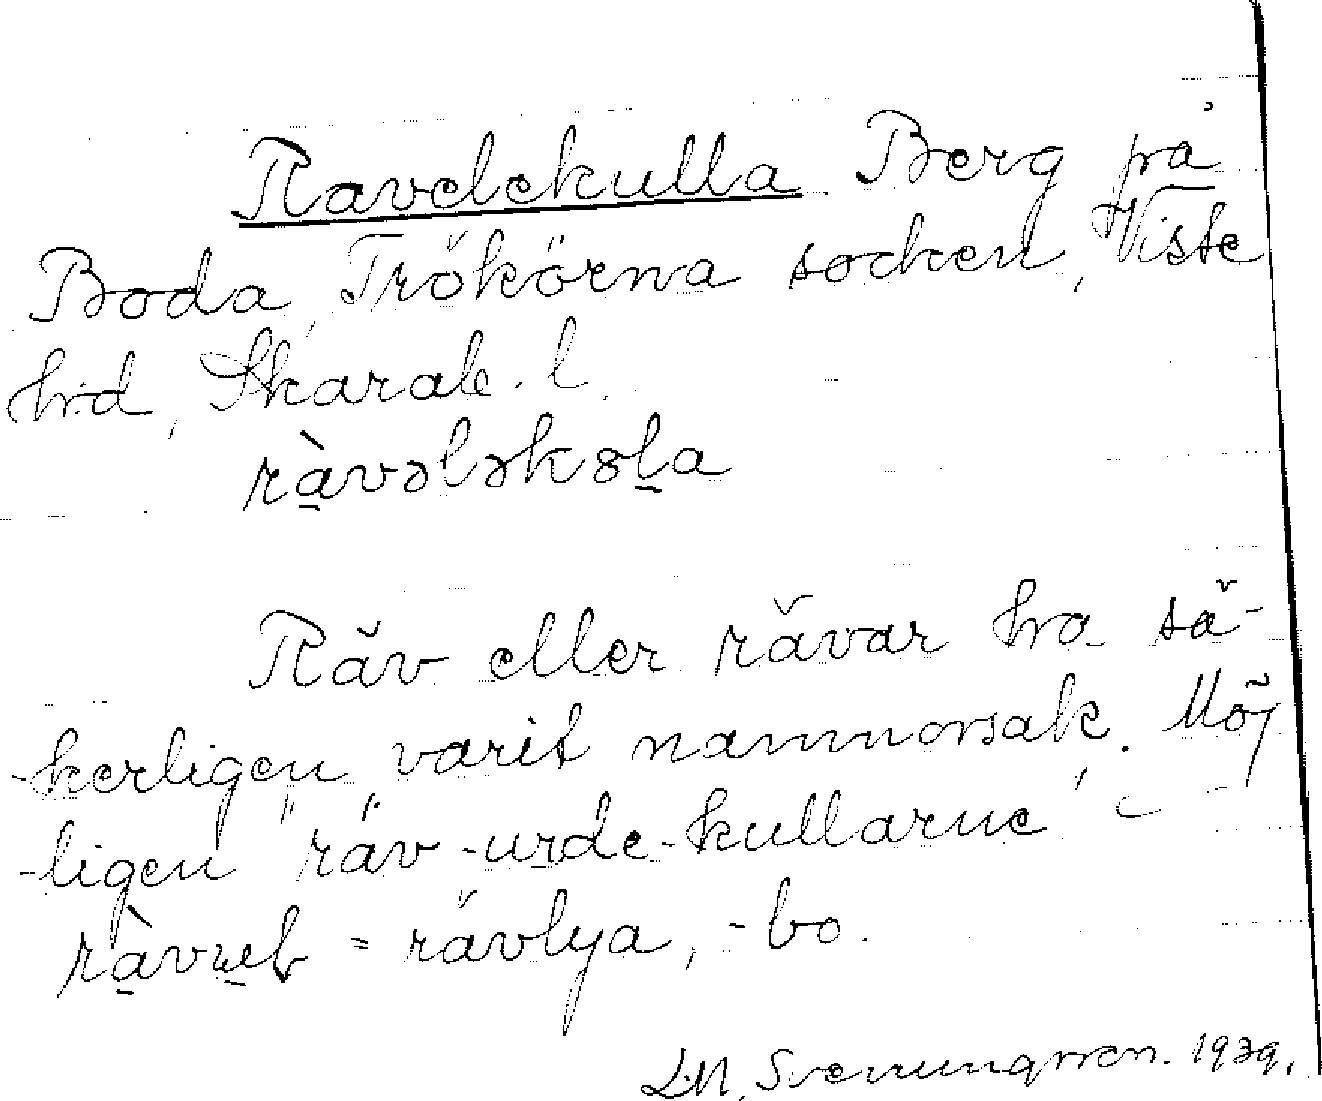 Ravelekulla Berg på
Boda, Trökörna socken, Viste
hrd, Skarab. l.
ràvələkola
Räv eller rävar ha sä-
-kerligen varit namnorsak. Möj
-ligen "räv-urde-kullarne"
= rävlya, -bo.
L.M. Svenungsson. 1939.